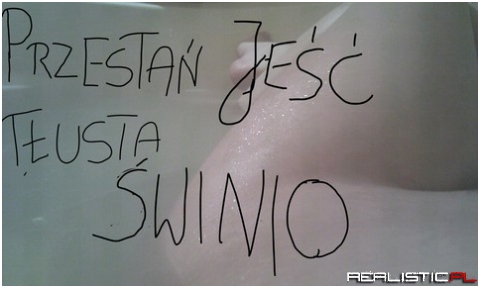 PRZESTAŃ JEŚĆ
TŁUSTA
ŚWINIO
REALISTICPL